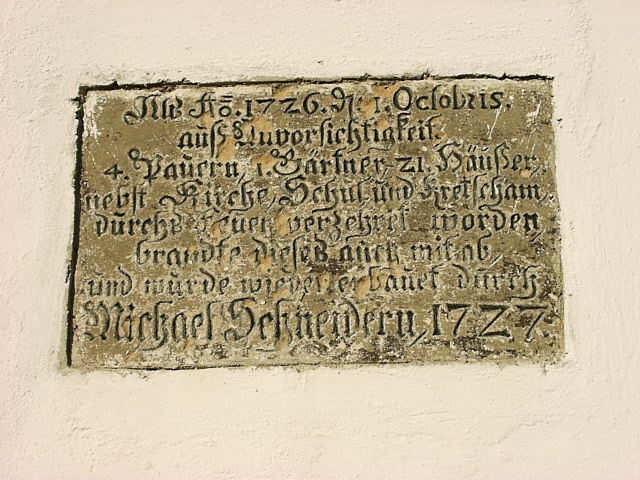 Als Aō. 1726. dn 1. Octobris.
auß Unvorsichtigkeit.
4. Pauern, 1. Gärtner, 21. Häußer,
nebst Kirche, Schul und Kretscham,
durchs feuer verzehret worden,
brandte dieses auch mit ab,
und wurde wieder erbauet durch
Michael Schneidern, 1727.